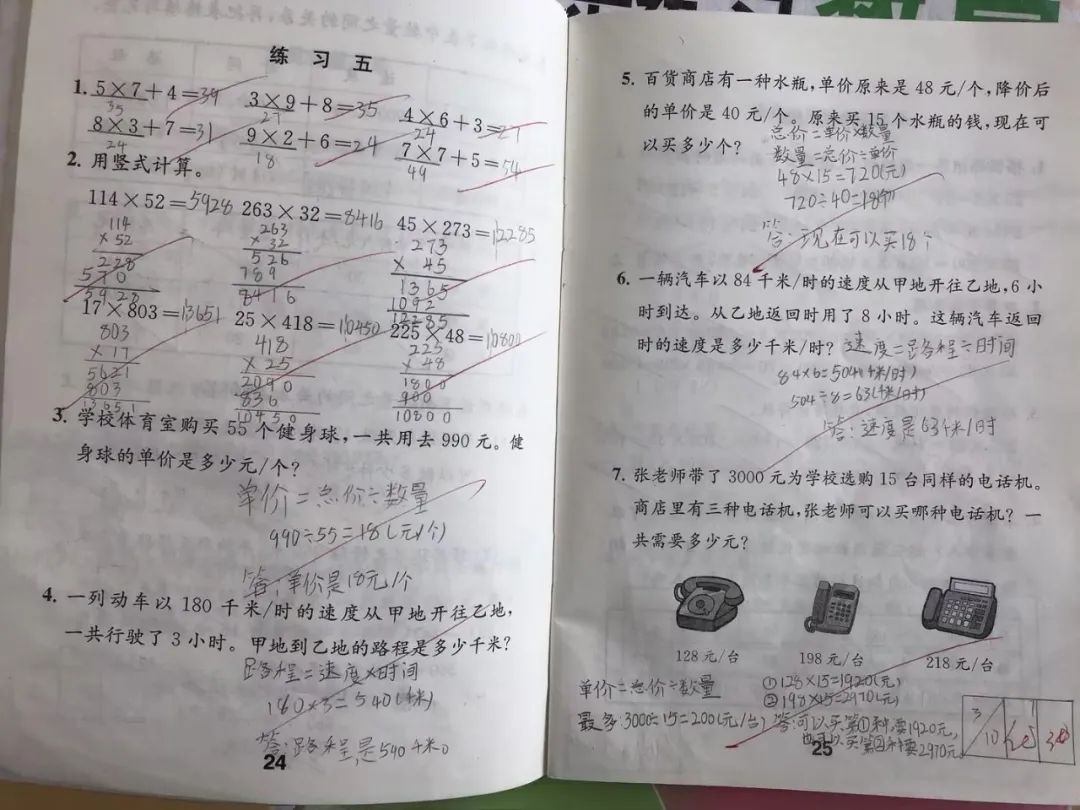 练 习 五
1. 5×7+4=39 3×9+8=35 4×6+3=27
35 27 24
8×3+7=31 9×2+6=24 7×7+5=54
24 18 49
2. 用竖式计算。
114×52=5928 263×32=8416 45×273=12285
114 263 273
×52 ×32 × 45
228 526 1365
570 789 1092
5928 8416 12285
17×803=13651 25×418=10450 225×48=10800
803 418 225
×17 ×25 ×48
5621 2090 1800
803 836 900
13651 10450 10800
3. 学校体育室购买 55 个健身球，一共用去 990 元。健
身球的单价是多少元/个？
单价=总价÷数量
990÷55=18(元/个)
答:单价是18元/个
4. 一列动车以 180 千米/时的速度从甲地开往乙地，
一共行驶了 3 小时。甲地到乙地的路程是多少千米？
路程=速度×时间
180×3=540(千米)
答:路程是540千米。
24
5. 百货商店有一种水瓶，单价原来是 48 元/个，降价后
的单价是 40 元/个。原来买 15 个水瓶的钱，现在可
以买多少个？
总价=单价×数量
数量=总价÷单价
48×15=720(元)
720÷40=18(个)
答:现在可以买18个
6. 一辆汽车以 84 千米/时的速度从甲地开往乙地，6 小
时到达。从乙地返回时用了 8 小时。这辆汽车返回
时的速度是多少千米/时？ 速度=路程÷时间
84×6=504(千米/时)
504÷8=63(千米/时)
答:速度是63千米/时
7. 张老师带了 3000 元为学校选购 15 台同样的电话机。
商店里有三种电话机，张老师可以买哪种电话机？一
共需要多少元？
128 元/台 198 元/台 218 元/台
单价=总价÷数量 ①128×15=1920(元)
②198×15=2970(元)
最多:3000÷15=200(元/台) 答:可以买第①种,要1920元,
也可以买第②种要2970元。
25
3 10